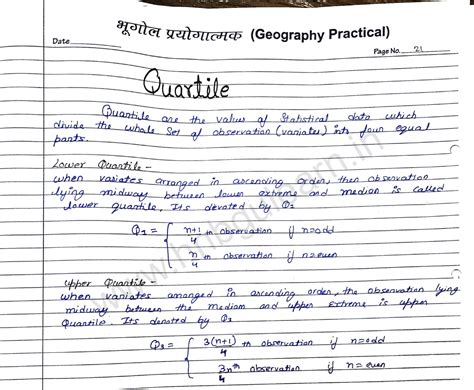 भूगोल प्रयोगात्मक (Geography Practical)
Date
Page No. 21
Quartile
Quantile are the values of Statistical data which
divide the whole set of observation (variates) into four equal
parts.
Lower Quantile -
when variates arranged in ascending order, then observation
lying midway between lower extreme and median is called
lower quantile, Its devoted by Q1
Q1 = { n+1/4 th observation if n=odd
n/4 th observation if n=even
upper Quantile -
when variates arranged in ascending order, the observation lying
midway between the median and upper extreme is upper
Quantile. Its denoted by Q3
Q3 = { 3(n+1)/4 th observation if n=odd
3n/4 th observation if n=even